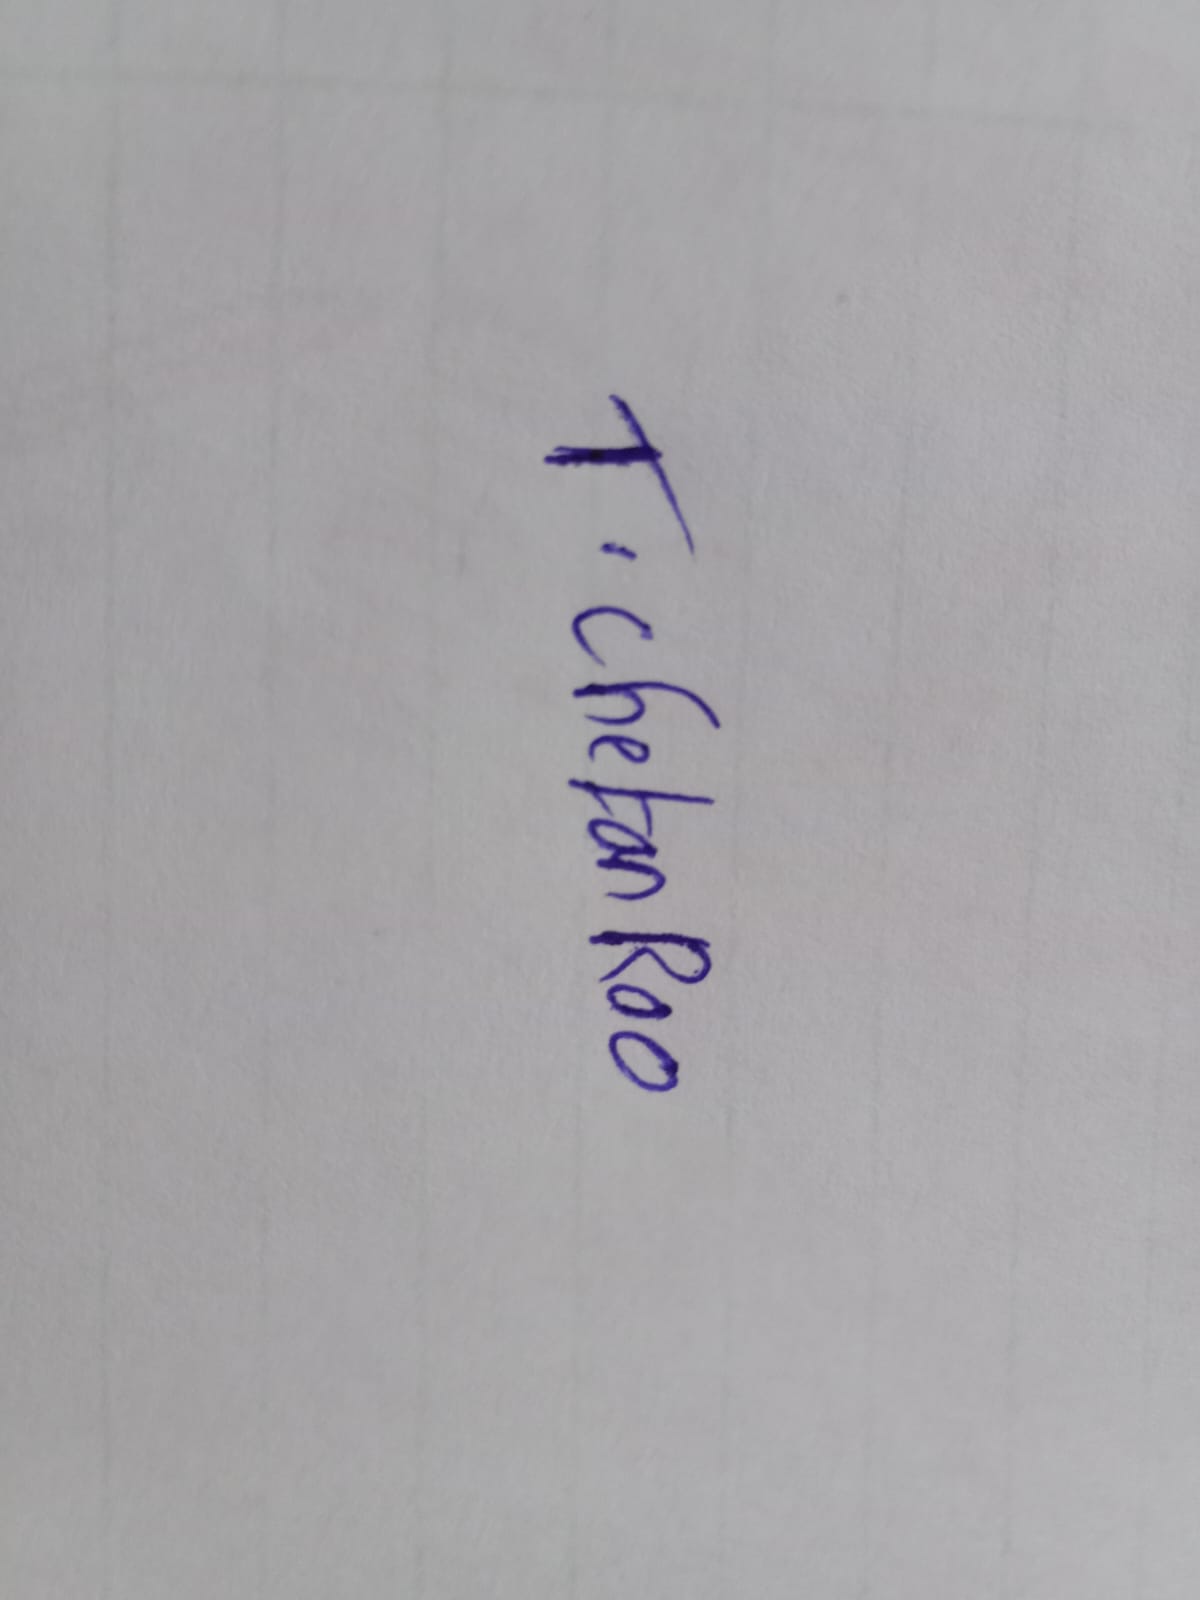 T. chetan Rao